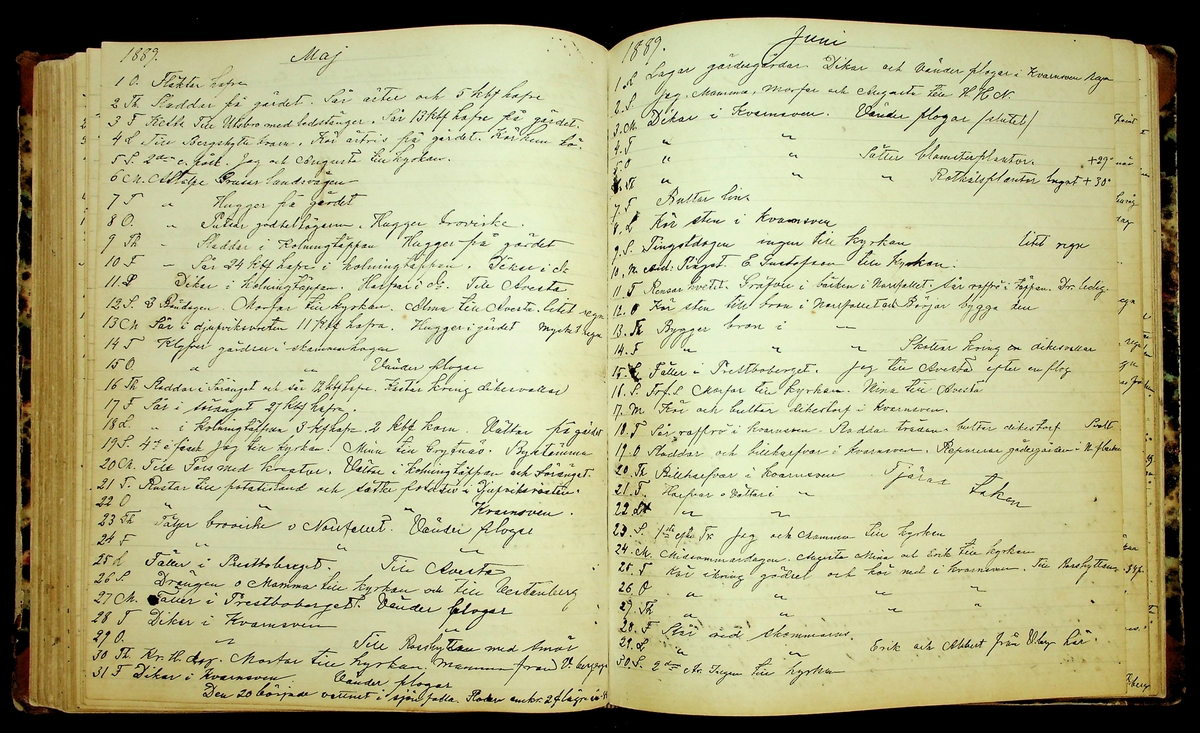 1889. Maj
1 O. Fläkter hafre
2 Th Sladder på gärdet. Sår ärter och 5 kbf hafre
3 F Till Utsbro med ledstänger. Sår 13 kbf hafre på gärdet.
4 L Till Bergsbyle qvarn. Kör på gärdet. Kör hem hö.
5 S. 2dra e. påsk. Jag och Augusta till kyrkan.
6 M. Grusar landsvägen
7 T " Hugger på gärdet
8 O. " Hugger brovirke.
9 Th - Sladdar i Kolningtäppan Hugger på gärdet
10 F - Sår 24 kbf hafre i kolningtäppan. Dikar i d:o
11 L Dikar i Kolningtäppan. Harfvar i d:o. Till Avesta
12 S. 3 Böndagen. Morfar till kyrkan. Alma till Avesta. litet regn
13 M Sår i djupviksvreten 11 kbf hafre. Hugger i gärdet mycket regn
14 T Klyfver gärdsel i skommarhagen
15 O " " Vänder plogar
16 Th Raddar i Söränget och sår 12 kbf hafre. kring dikesvallar
17 F Sår i söränget 27 kbf hafre.
18 L " i Kolningtäppan 3 kbf hafre 2 kbf korn. Vältar på gärdet
19 S. 4 i påsk Jag till kyrkan. Mina till Grytnäs. Bystämma
20 M. Till Fors med kreatur. Vältar i Kolningtäppan och Söränget.
21 T. Rustar till potatisland och sätter potatis i Djupviksvreten.
22 O " " " Kvarnsven.
23 Th Täljer brovirke o Norrfallet. Vänder plogar
24 F " " "
25 L Fäller i Prestboberget. Till Avesta
26 S. Drängen o Mamma till kyrkan och till Vestenberg
27 M. Fäller i Prestboberget. Vänder plogar
28 T Dikar i Kvarnsven "
29 O. " Till Rosshyttan med smör
30 Th Kr. H. dag. Morfar till kyrkan, mamma från
31 F Dikar i Kvarnsven. Vänder plogar
Den 20 började vattnet i sjön falla.
1889. Juni
1. L Lagar gärdesgårdar. Dikar och Vänder plogar i Kvarnsven regn
2. S. Jag, Mamma, Morfar och Augusta till H.H.N.
3. M. Dikar i Kvarnsven. Vänder plogar (slutet)
4. T " "
5. O " " Sätter blomsterplantor. +29°
6. Th " " " Rotkålsplantor +30°
7. F Bultar lin
8. L Kör sten i Kvarnsven
9. S. Pingstdagen ingen till kyrkan litet regn
10. M. And: Pingst E. Gustafson till kyrkan.
11. T Rensar hvetet. Gräfver i bäcken i Norrfallet. Sår raffrö i Täppan. Dr. ledig.
12. O Kör sten till bron i Norrfallet och Börjar bygga den
13. Th Bygger bron i "
14. F " " " Skottar kring en dikesvallar
15. L Fäller i Prestboberget. Jag till Avesta efter en plog
16. S. Tref. S. Morfar till kyrkan. Mina till Avesta
17. M Kör och bultar dikestorf i kvarnsven.
18. T Sår raffrö i kvarnsven. Raddar bultar dikestorf
19. O Raddar och billharfvar i kvarnsven. Reparerar gärdesgården
20. Th Billharfvar i kvarnsven Tjärar
21. F. Harfvar o Vältar i " taken
22. L " " "
23. S. 1sta efter Tr. Jag och Mamma till kyrkan
24. M. Midsommardagen. Augusta Mina och Erik till kyrkan
25. T Kör ihop gödsel och kör ned i kvarnsven. Till Rosshyttan
26. O " " "
27. Th " " "
28. F Slår vid skommaren.
29. L " " Erik och Albert från V.berg här
30. S. 2dra e. Tr. Ingen till kyrkan